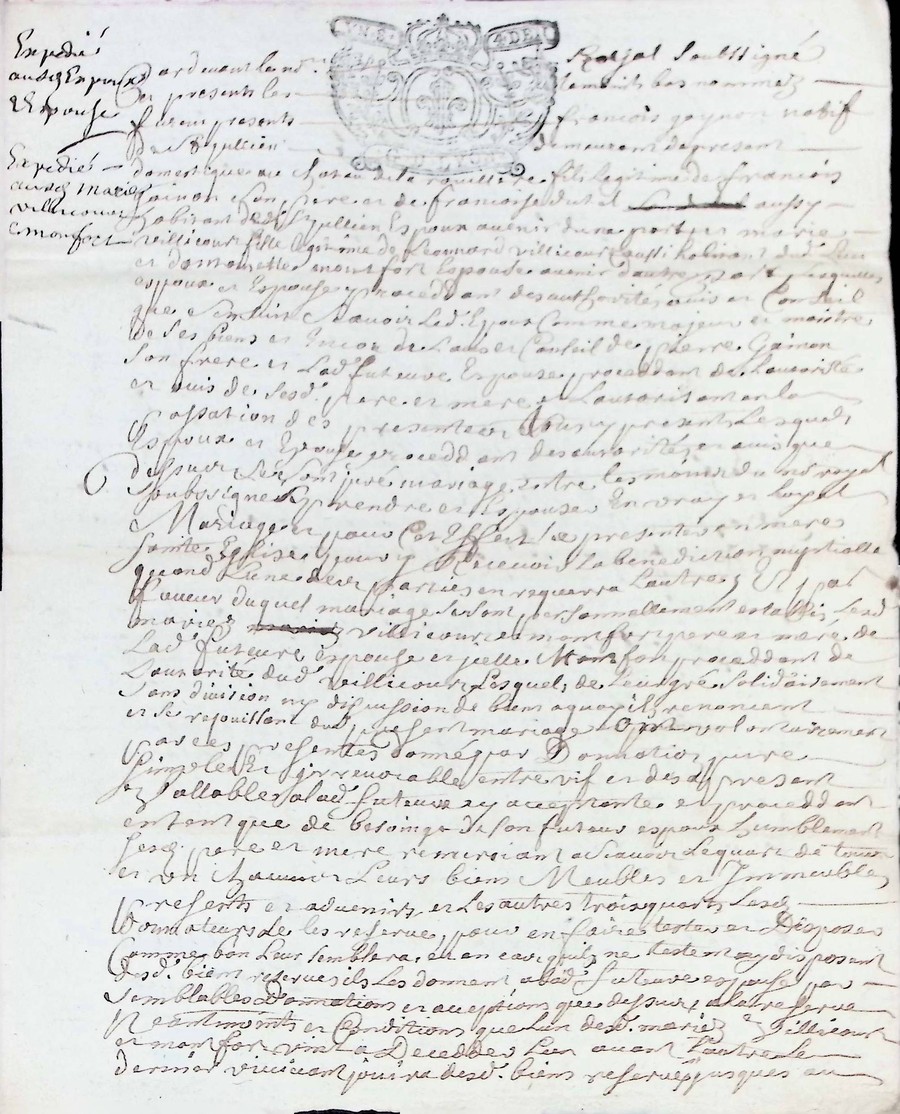 Expedié
ausd Espoux
& Espouse
Expedié
ausd mariez
villicour
& monfort
VN S 4 DE
G D LYON
Pardevant le not Royal soubsigné
et presents les temoins bas nommez
furent presents francois gaynon natif
de St Jullien demeurant de present
domestique au chateau de la rouillere fils legitime de francois
Gainon son pere et de francoise aussy
habitant dud St Jullien Espoux avenir dune part et marie
villicour fille legitime de Leonnard villicour aussi habitant dud Lieu
et monfort Espouse avenir dautre part Lesquelles
espoux et Espouse procedant des authorités avis et Conseil
que sensuit Scavoir Led Epoux Comme majeur et maitre
de ses biens et Encor de Lavis et Conseil de pierre Gainon
son frere et Lad future Espouse procedant de Lautorité
et avis de sesd pere et mere Lautorisant en la
passation des presentes presents Lesquels
Espoux et Epouse procedant des autorités et avis que
dessus se sont juré mariage entre les mains du not royal
soubssigné Se prendre et Espouser En vray et Loyal
Mariage et pour Cet Effect se presenter en nostre
sainte Eglise pour y Recevoir La benediction nuptialle
quand L'une des parties en requerra Lautre Et par
faveur duquel mariage se sont personnellement establis Lesd
mariez villicour et monfort pere et mere de
Lad future espouse et icelle Monfort proceddant de
Lautorité dud villicour Lesquels de Leur gré solidairement
sans division ny discussion de biens a quoy ils renoncent
et se rejouissant dud present mariage Ont volontairement
par ces presentes donné par Donnation pure
simple Et irrevocable entre vif et des a present
vallable a lad future cy acceptante et proceddant
entant que de besoing de son futeur espoux humblement
sesd pere et mere remersiant a scavoir Le quart de tous
et un chacun Leurs biens Meubles et Immeubles
presents et advenirs et Les autres trois quarts Lesd
Donnateurs se les reserve pour en faire tester et Disposer
Comme bon Leur semblera et en cas quils ne testent ny disposent
desd biens reservés ils Les donnent a lad future espouse par
semblables Donnations et acceptions que dessus a la reserve
Neantmoints et Conditions que Lun desd mariez Villicour
et monfort vint a Decedder Lun avant Lautre Le
dernier vivant jouira desd biens reserves jusques au